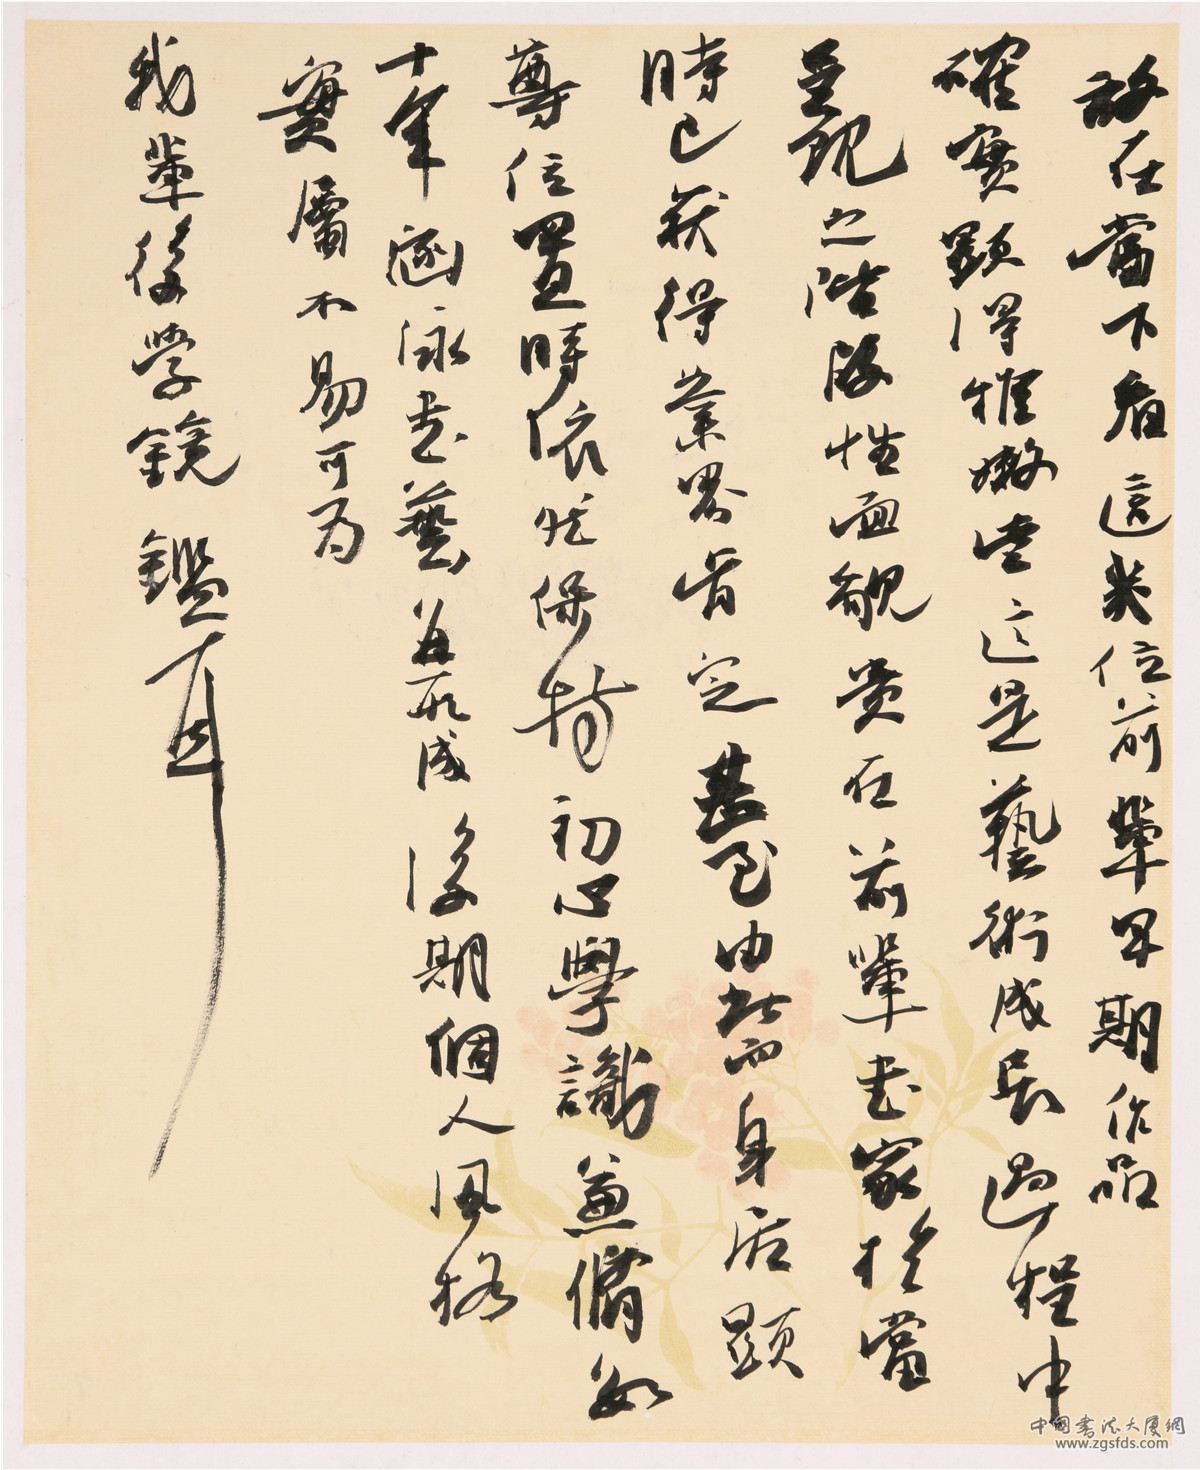 放在當下看這類位前輩早期作品
確實顯得稚嫩些這是藝術成長過程中
呈現之階段性面貌貴在前輩書家於當
時已獲得業界肯定甚至由此而身居顯
尊位置時依然保持初心學識兼備如
十年涵泳書藝並形成後期個人風格
實屬不易可為
我輩後學鏡鑑
中国书法大厦網
www.zgsfds.com